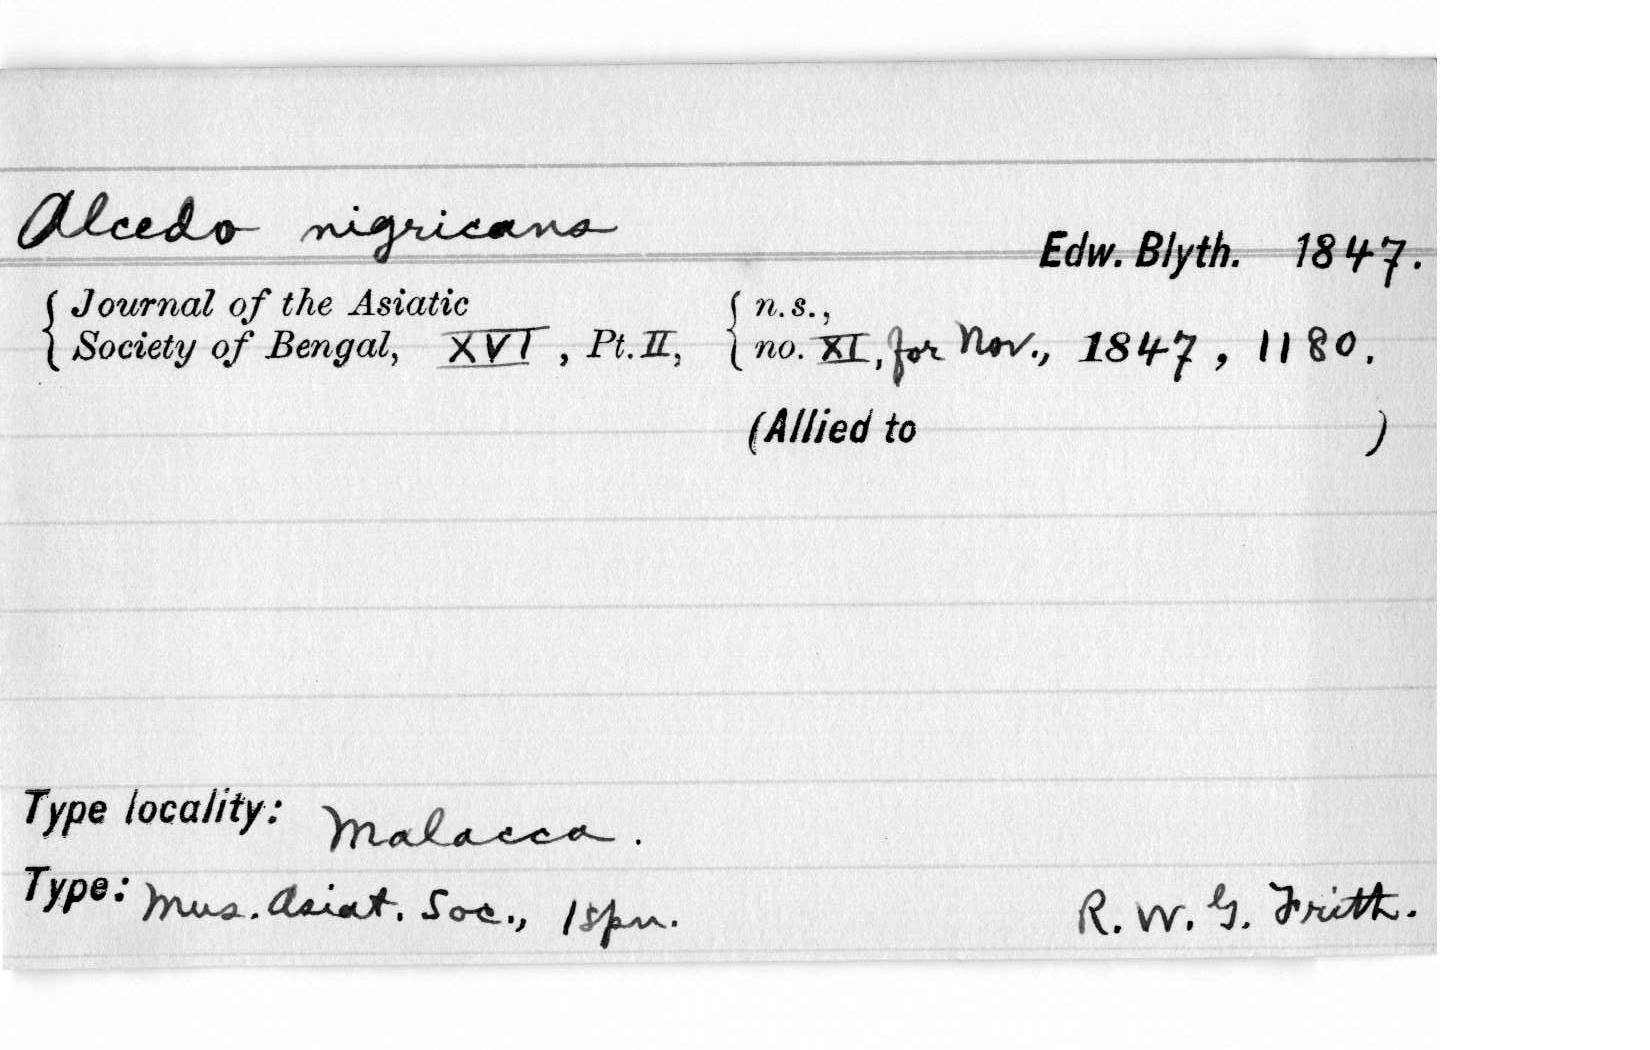 Alcedo nigricans
Edw. Blyth. 1847.
{ Journal of the Asiatic { n.s.,
{ Society of Bengal, XVI, Pt. II, { no. XI, for Nov., 1847, 1180.
(Allied to )
Type locality: Malacca.
Type: Mus. Asiat. Soc., 1 spn. R. W. G. Frith.